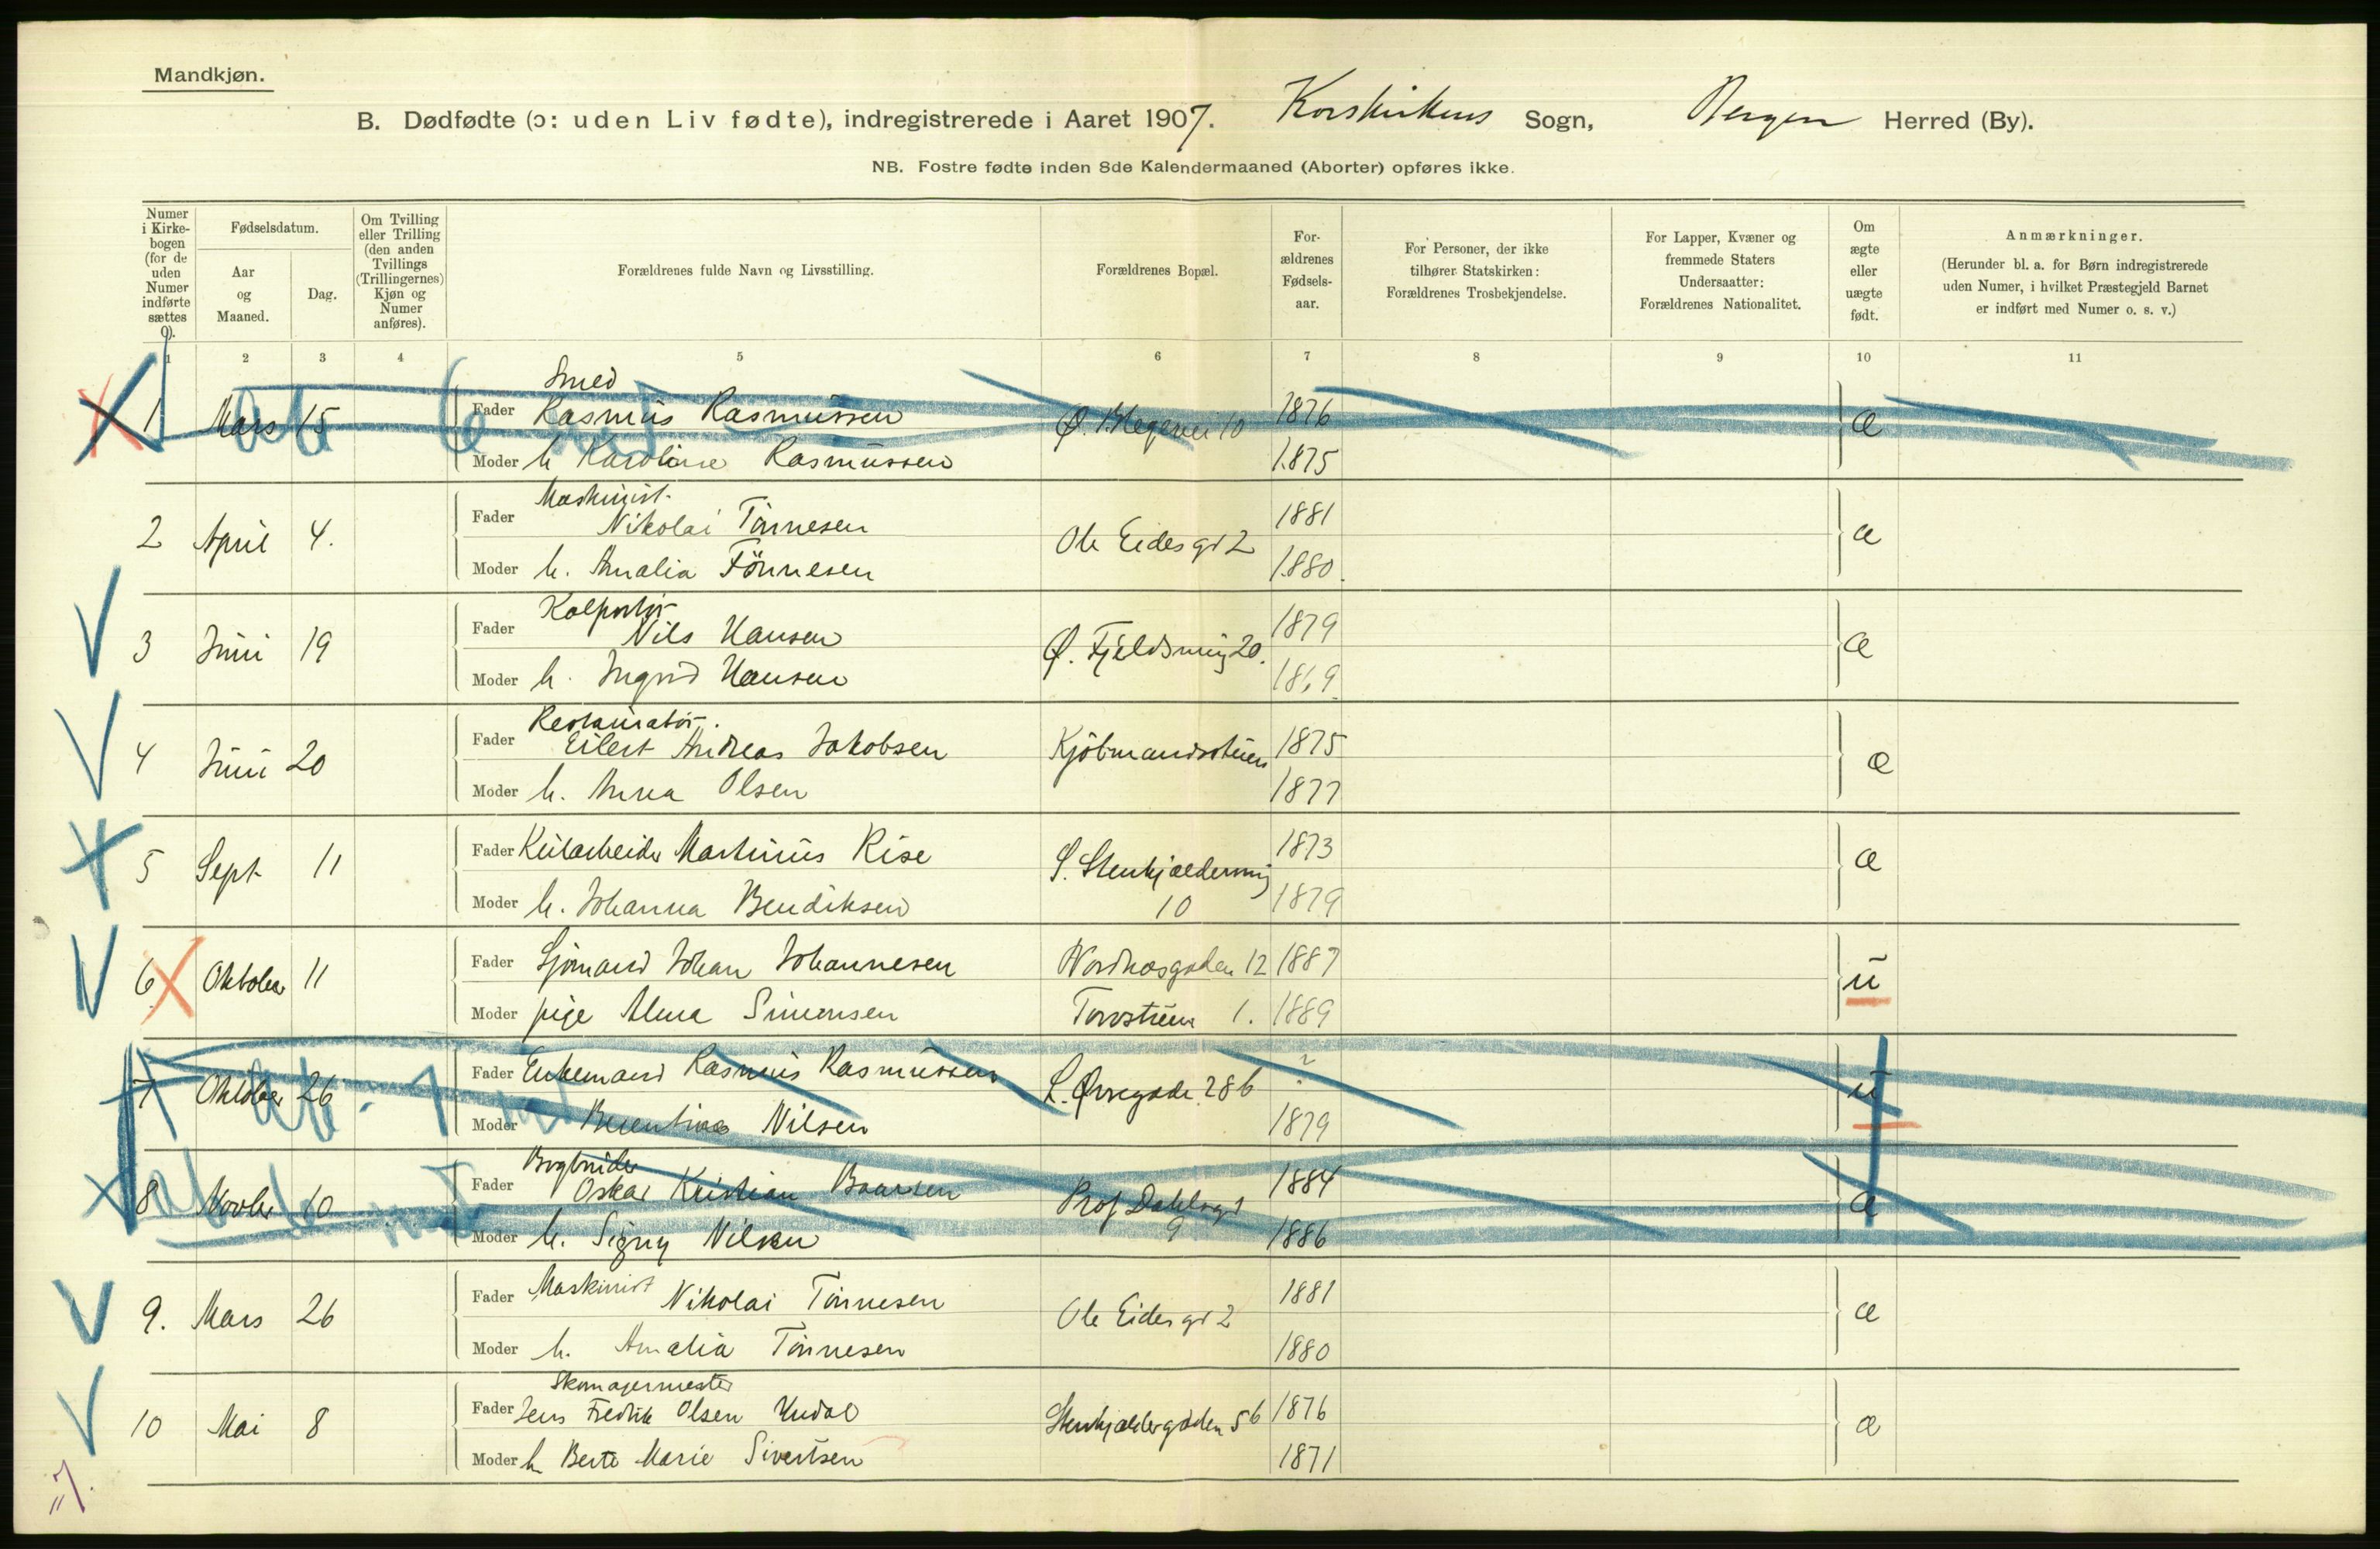 Mandkjøn.
B. Dødfødte (ɔ: uden Liv fødte), indregistrerede i Aaret 1907. Korskirkens Sogn, Bergen Herred (By).
NB. Fostre fødte inden 8de Kalendermaaned (Aborter) opføres ikke.
Numer i Kirkebogen (for de uden Numer indførte sættes 0).
Fødselsdatum.
Aar og Maaned.
Dag.
Om Tvilling eller Trilling (den anden Tvillings (Trillingernes) Kjøn og Numer anføres).
Forældrenes fulde Navn og Livsstilling.
Forældrenes Bopæl.
For-ældrenes Fødsels-aar.
For Personer, der ikke tilhører Statskirken: Forældrenes Trosbekjendelse.
For Lapper, Kvæner og fremmede Staters Undersaatter: Forældrenes Nationalitet.
Om ægte eller uægte født.
Anmærkninger.
(Herunder bl. a. for Børn indregistrerede uden Numer, i hvilket Præstegjeld Barnet er indført med Numer o. s. v.)
1 2 3 4 5 6 7 8 9 10 11
Smed
1 Mars 15 Fader Rasmus Rasmussen Ø. Blegevei 10 1876 æ
Moder h Karoline Rasmussen 1875
Maskinist.
2 April 4. Fader Nikolai Tönnesen Ole Eides gt 2 1881 æ
Moder h. Amalia Tönnesen 1880.
Kolportør
3 Juni 19 Fader Nils Hansen Ø. Fjeldsmug 20. 1879 æ
Moder h. Ingrid Hansen 1869.
Restauratør.
4 Juni 20 Fader Eilert Andreas Jakobsen Kjöbmandsstuen 1875 æ
Moder h. Anna Olsen 1877
5 Sept 11 Fader Martinius Rise S. Stenkjældersmug 1873 æ
Moder h. Johanna Bendiksen 10 1879
6 Oktober 11 Fader Sjömand Johan Johannesen Nordnæsgaden 12 1887 ü
Moder pige Alma Simonsen 1. 1889
7 Oktober 26 Fader Enkemand Rasmus Rasmussen L. Øvregade 28 b ? ü
Moder Berentine Nilsen 1879
8 Novbr 10 Fader Oskar Kristian Baarsen Prof Dahlsgt 1884 æ
Moder h. Signy Nilsen 9 1886
9. Mars 26 Fader Maskinist Nikolai Tönnesen Ole Eides gt 2 1881 æ
Moder h. Amalia Tönnesen 1880
Skomagermester
10 Mai 8 Fader Jens Fredrik Olsen Undal Stenkjældergaden 5 b 1876 æ
Moder h Berte Marie Sivertsen 1871